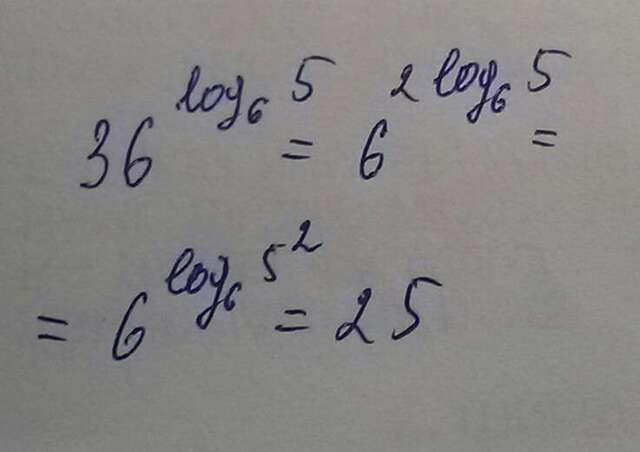 36^{log_6 5} = 6^{2 log_6 5} =
= 6^{log_6 5^2} = 25